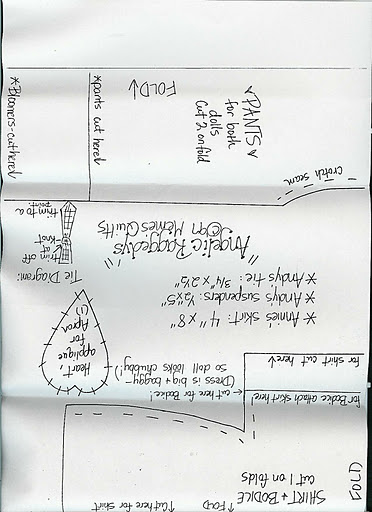 SHIRT + BODICE
cut 1 on folds
FOLD
↑ FOLD
↑ Cut here for shirt
for Bodice attach skirt here↑
for shirt cut here↓
← cut here for Bodice!
(Dress is big + baggy -
so doll looks chubby!)
Heart,
applique
for
Apron
(1)
* Annie's skirt: 4" x 8"
* Andy's suspenders: ½ x 5"
* Andy's tie: ¾" x 2½"
Tie Diagram:
trim off
at
knot
trim to a
point.
"Angelic Raggedys"
©Jan Mcines Quilts
crotch seam
♥PANTS♥
for both
dolls
Cut 2 on fold
FOLD↓
*pants cut here↓
*Bloomers-cut here↓